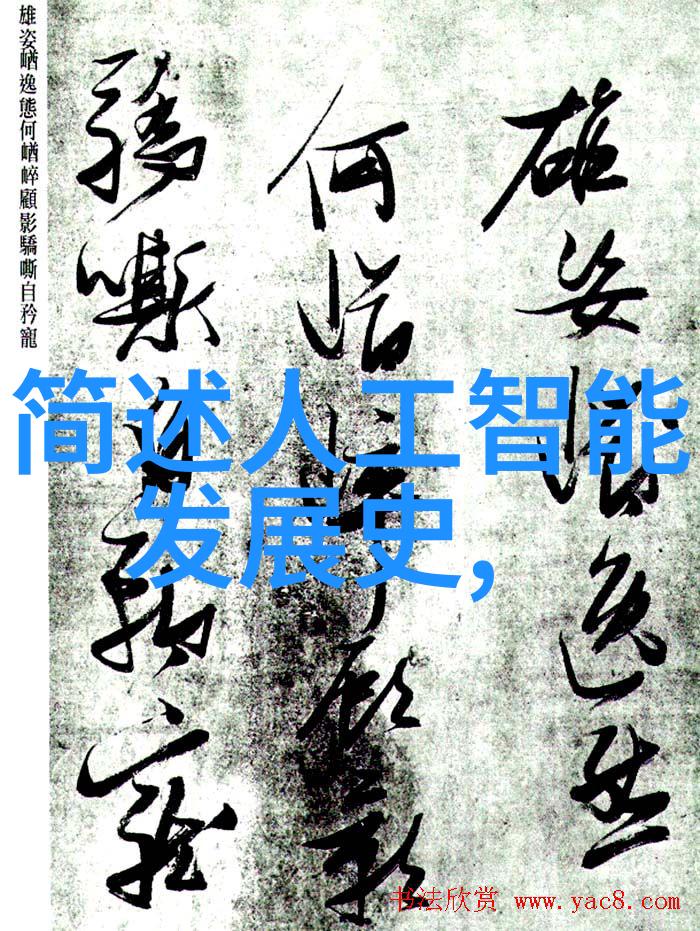 雄姿逸態
何顧影
驕嘶自矜寵
雄姿崷逸態何崷崒顧影驕嘶自矜寵
简述人工智能
发展史,
书法欣赏 www.yac8.com